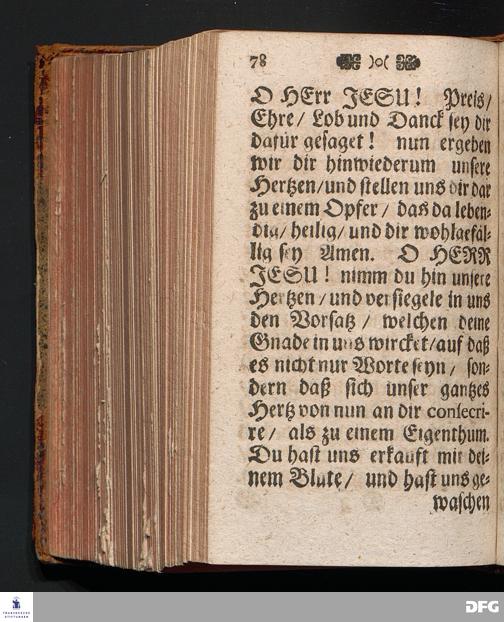 78 )o(
O HErr JESU! Preis/
Ehre/ Lob und Danck sey dir
dafür gesaget! nun ergeben
wir dir hinwiederum unsere
Hertzen/und stellen uns dir dar
zu einem Opfer/ das da leben-
dig/ heilig/ und dir wohlgefäl-
lig sey Amen. O HERR
JESU! nimm du hin unsere
Hertzen/ und versiegele in uns
den Vorsatz/ welchen deine
Gnade in uns wircket/auf daß
es nicht nur Worte seyn/ son-
dern daß sich unser gantzes
Hertz von nun an dir consecri-
re/ als zu einem Eigenthum.
Du hast uns erkauft mit dei-
nem Blute/ und hast uns ge-
waschen
FRANCKESCHE
STIFTUNGEN
DFG